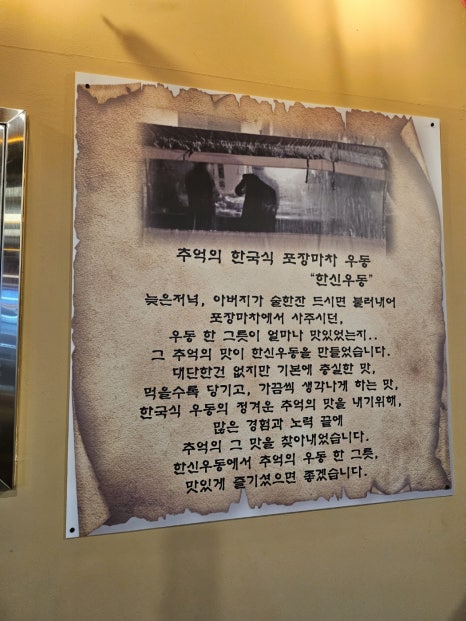 추억의 한국식 포장마차 우동
“한신우동”
늦은저녁, 아버지가 술한잔 드시면 불러내어
포장마차에서 사주시던,
우동 한 그릇이 얼마나 맛있었는지..
그 추억의 맛이 한신우동을 만들었습니다.
대단한건 없지만 기본에 충실한 맛,
먹을수록 당기고, 가끔씩 생각나게 하는 맛,
한국식 우동의 정겨운 추억의 맛을 내기위해,
많은 경험과 노력 끝에
추억의 그 맛을 찾아내었습니다.
한신우동에서 추억의 우동 한 그릇,
맛있게 즐기셨으면 좋겠습니다.